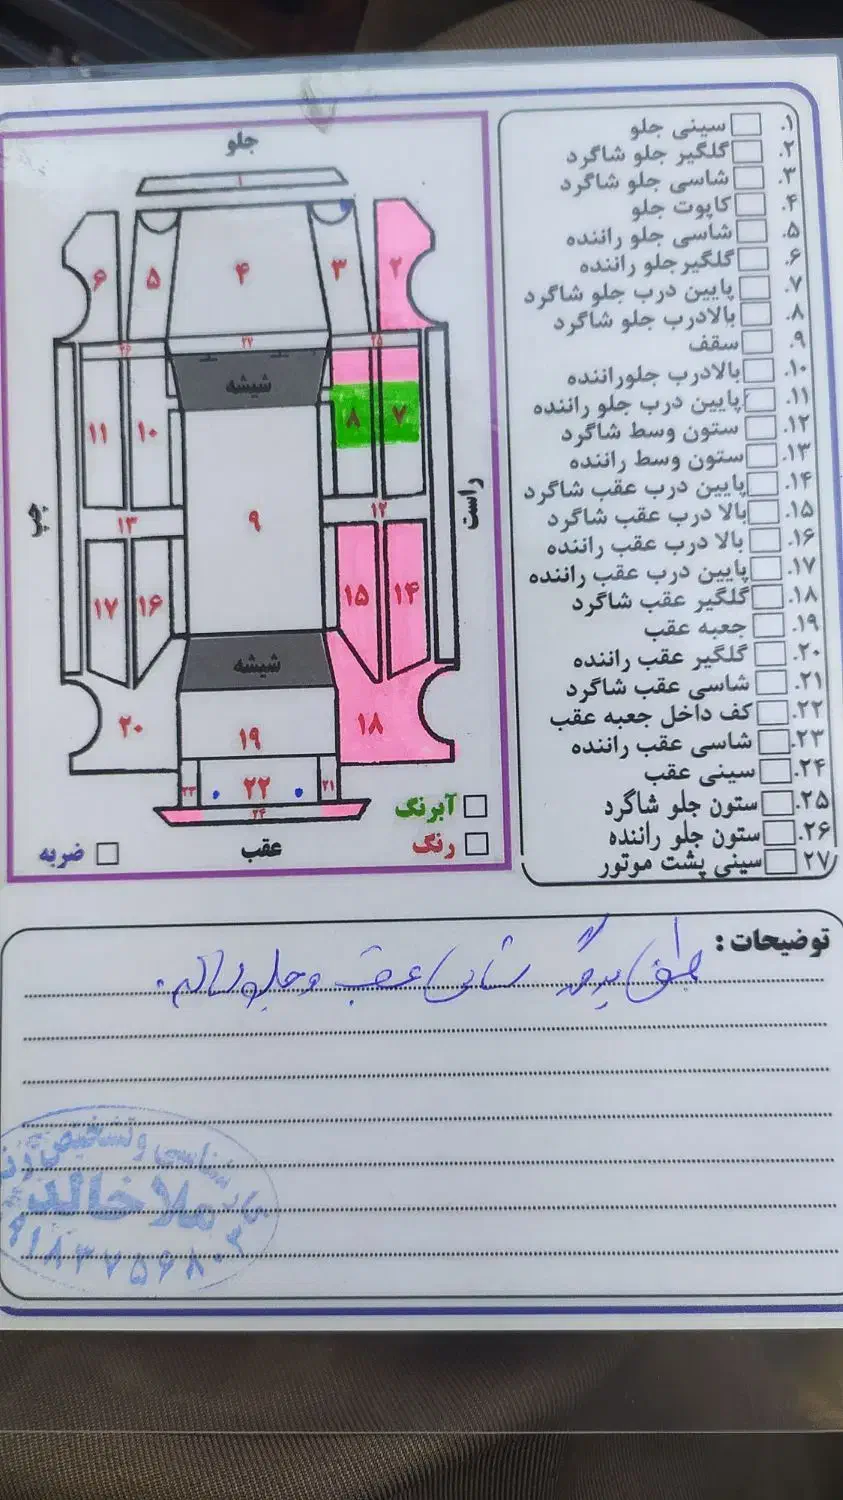 ۱. سینی جلو
۲. گلگیر جلو شاگرد
۳. شاسی جلو شاگرد
۴. کاپوت جلو
۵. شاسی جلو راننده
۶. گلگیر جلو راننده
۷. پایین درب جلو شاگرد
۸. بالادرب جلو شاگرد
۹. سقف
۱۰. بالادرب جلوراننده
۱۱. پایین درب جلو راننده
۱۲. ستون وسط شاگرد
۱۳. ستون وسط راننده
۱۴. پایین درب عقب شاگرد
۱۵. بالا درب عقب شاگرد
۱۶. بالا درب عقب راننده
۱۷. پایین درب عقب راننده
۱۸. گلگیر عقب شاگرد
۱۹. جعبه عقب
۲۰. گلگیر عقب راننده
۲۱. شاسی عقب شاگرد
۲۲. کف داخل جعبه عقب
۲۳. شاسی عقب راننده
۲۴. سینی عقب
۲۵. ستون جلو شاگرد
۲۶. ستون جلو راننده
۲۷. سینی پشت موتور
جلو
۱
۲
۳
۴
۵
۶
۲۵
۲۷
۲۶
شیشه
۷
۸
۱۰
۱۱
راست
۹
چپ
۱۲
۱۳
۱۴
۱۵
۱۶
۱۷
شیشه
۱۸
۱۹
۲۰
۲۱
۲۲
۲۳
۲۴
آبرنگ
رنگ
عقب
ضربه
توضیحات :
شاسی عقب و جلو سالم.
کارشناسی و تشخیص رنگ
ملاخالد
۰۹۱۸۳۷۵۶۸۰۲